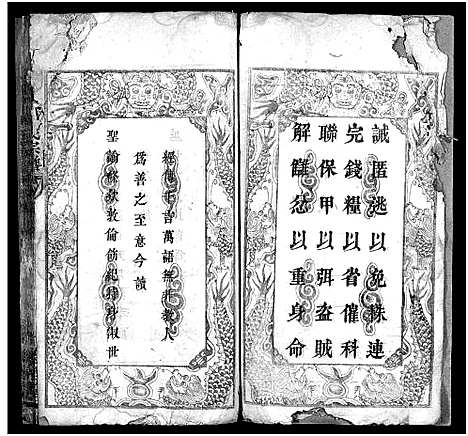 誡匿逃以免株連
完錢糧以省催科
聯保甲以弭盜賊
解讎忿以重身命
經傳千言萬語無非教人
爲善之至意今讀
聖諭十六條敦倫飭紀持身淑世